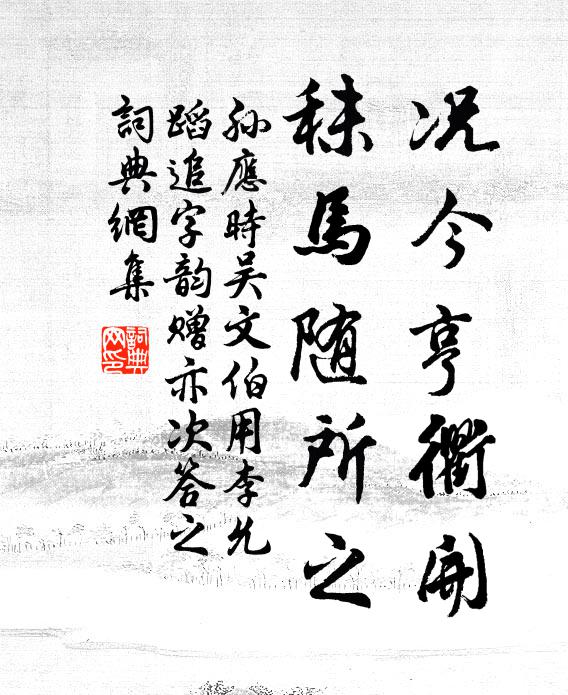 况今亨衢開
秣馬随所之
孙應時吴文伯用李允
蹈追字韵赠亦次答之
詞典網集
詞典網印